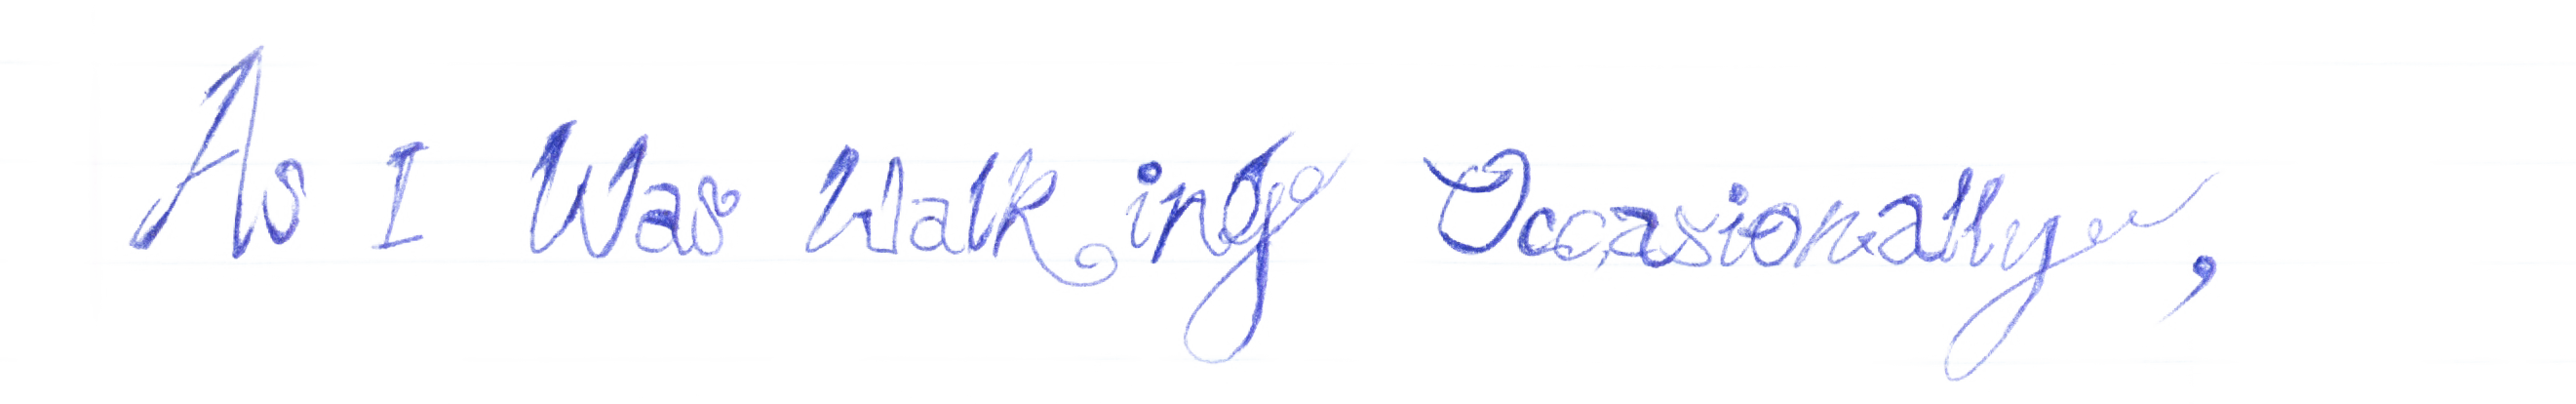 As I Was Walking Occasionally,